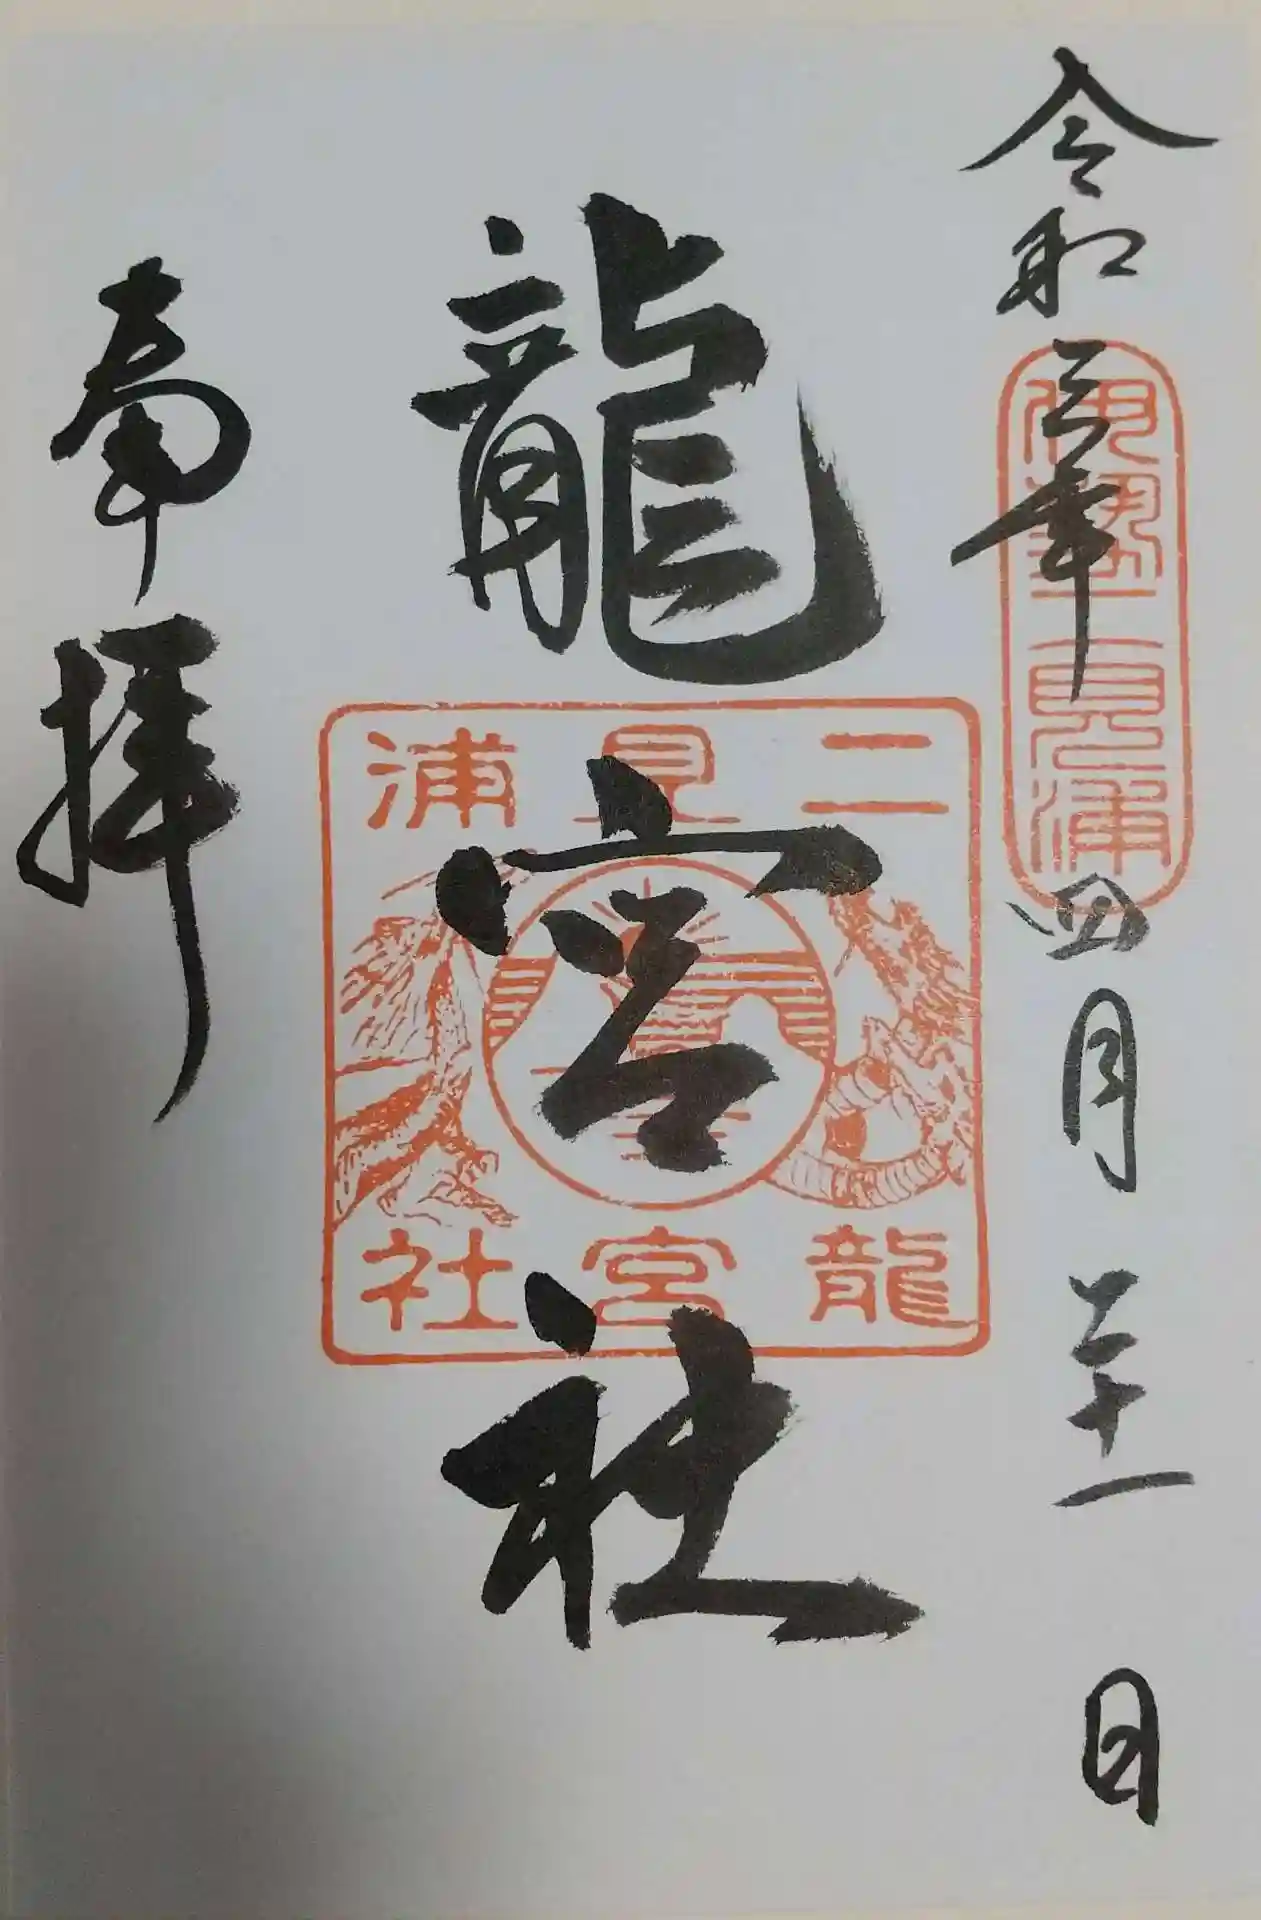 令和三年四月二十一日
伊勢二見浦
龍宮社
二見浦
龍宮社
奉拝